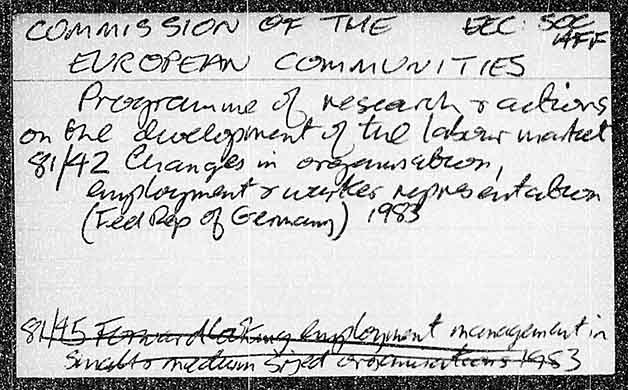 COMMISSION OF THE EEC: SOC
AFF
EUROPEAN COMMUNITIES
Programme of research & actions
on the development of the labour market
81/42 Changes in organisation,
employment & worker representation
(Fed Rep of Germany) 1983
81/45 Forward looking employment management in
small & medium sized organisations 1983